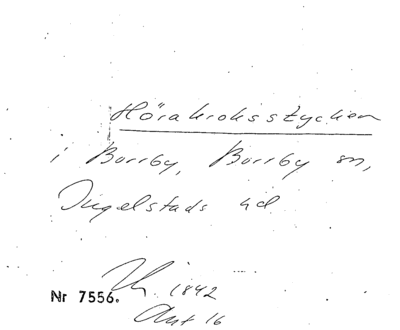 Hörakroksstycken
i Borrby, Borrby sn,
Ingelstads hd
Th. 1842
Nr 7556.
Ant 16